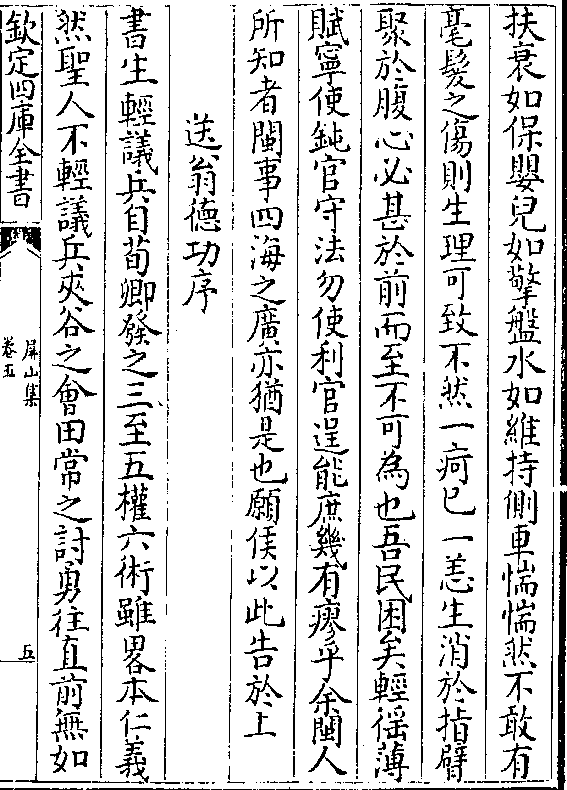 扶衰如保嬰兒如擎盤水如維持側車惴惴然不敢有
毫髮之傷則生理可致不然一疴已一恙生消於指臂
聚於腹心必甚於前而至不可為也吾民困矣輕徭薄
賦寧使鈍官守法勿使利官逞能庶幾有瘳乎余閩人
所知者閩事四海之廣亦猶是也願侯以此告於上
送翁德功序
書生輕議兵自荀卿發之三至五權六術雖畧本仁義
然聖人不輕議兵夾谷之會田常之討勇往直前無如
欽定四庫全書
屏山集
卷五
五